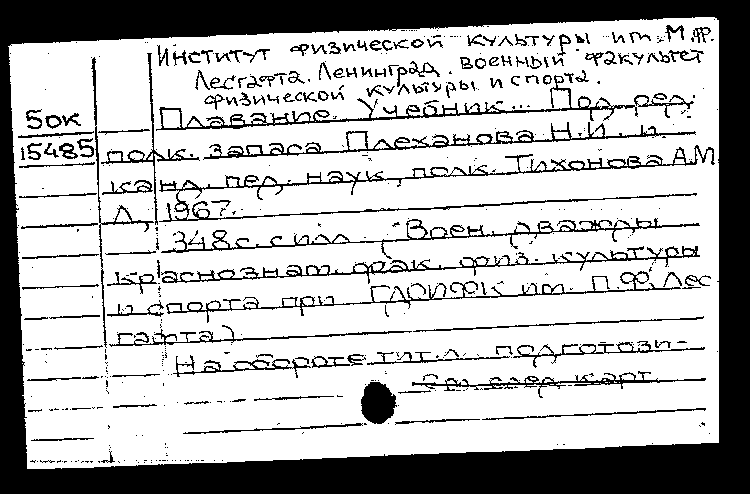 Институт физической культуры им. М.Ф.
Лесгафта. Ленинград. Военный факультет
физической культуры и спорта.
5ок
Плавание. Учебник... Под ред.
15485
полк. запаса Плеханова Н.И. и
канд. пед. наук, полк. Тихонова А.М.
Л., 1967.
348с. с илл. (Воен. дважды
краснознам. фак. физ. культуры
и спорта при ГДОИФК им. П.Ф. Лес
гафта)
На обороте тит.л. подготови-
См. след. карт.